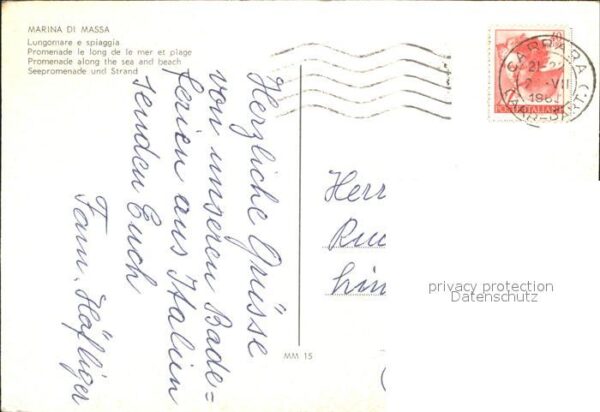 MARINA DI MASSA
Lungomare e spiaggia
Promenade le long de le mer et plage
Promenade along the sea and beach
Seepromenade und Strand
Herzliche Grüsse
von unseren Bade=
ferien aus Italien
senden Euch
Fam. Häfliger
CARRARA
21-22
VII
(MAR-PART.)
POSTE ITALIANE
Herr
privacy protection
Datenschutz
MM 15